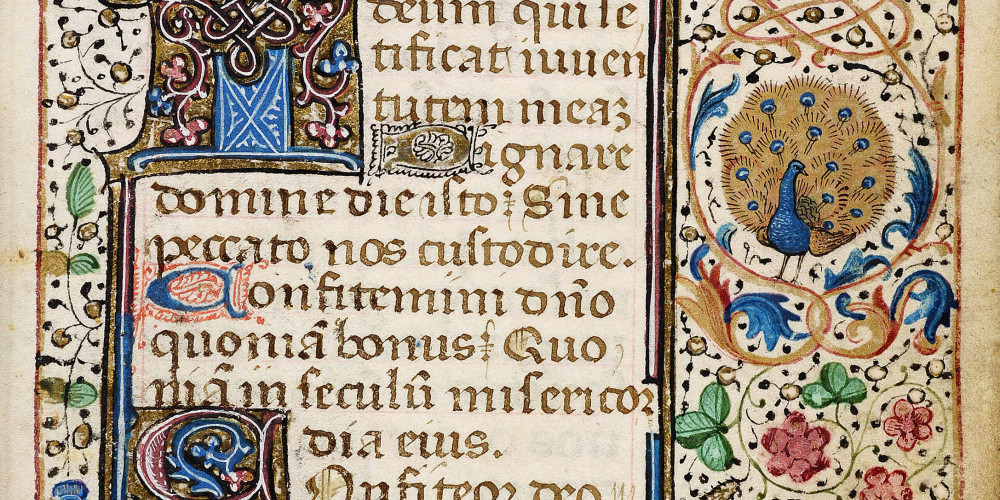 deum qui le
tificat iuuen
tutem meaz
Dignare
domine die isto: Sine
peccato nos custodire.
Confitemini dño
quoniã bonus: Quo
niã in seculũ misericor
dia eius.
COnfiteor deo